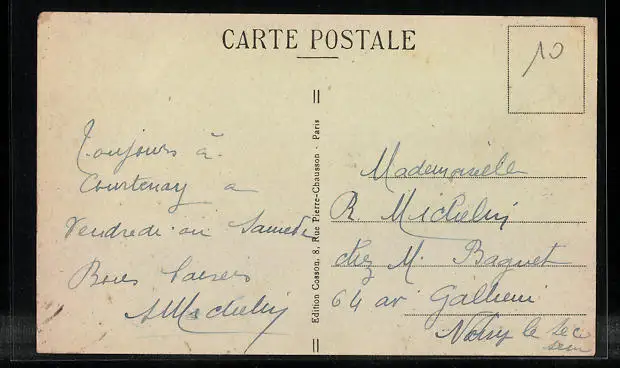 CARTE POSTALE
10
Toujours à
Courtenay a
Vendredi ou Samedi
Bons baisers
A Michelin
Edition Cosson, 8, Rue Pierre-Chausson - Paris
Mademoiselle
R Michelin
chez M. Baguet
64 av Galliéni
Noisy le Sec
Seine